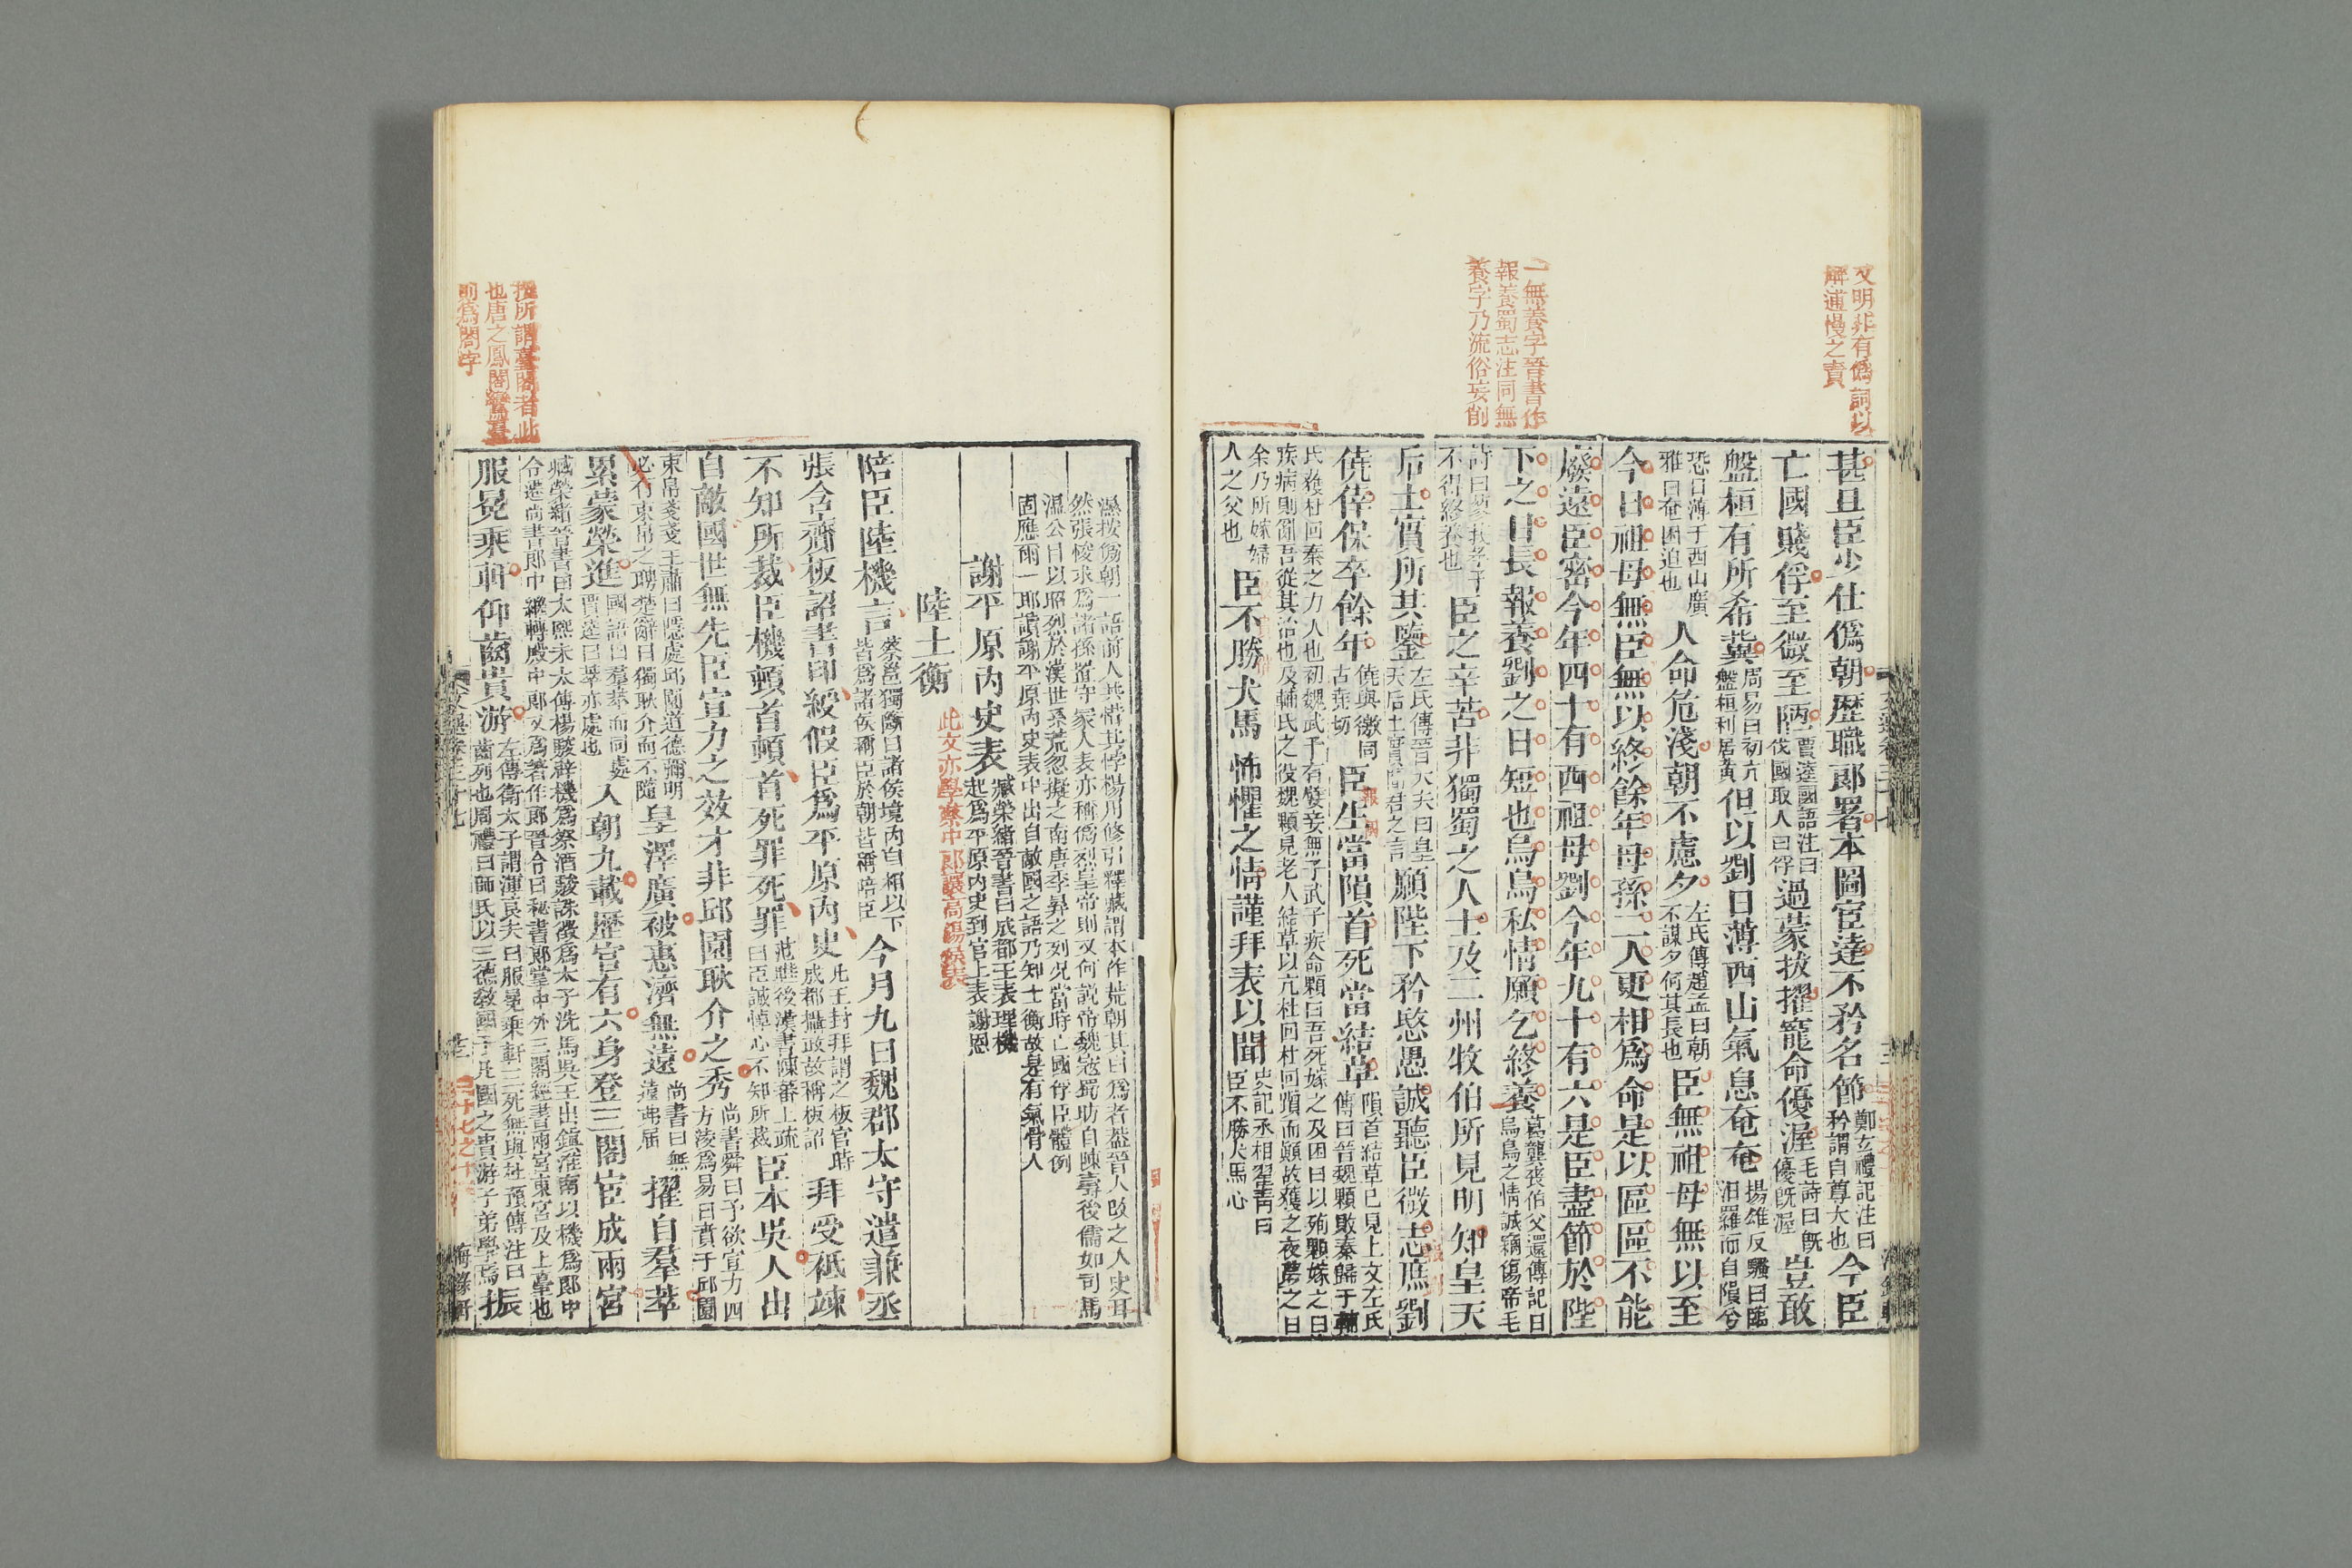 文明非有僞詞以
解逋慢之責
一無養字晉書作
報養蜀志注同無
養字乃流俗妄削
甚且臣少仕僞朝歷職郎署本圖宦達不矜名節鄭玄禮記注曰矜謂自尊大也今臣
亡國賤俘至微至陋賈逵國語注曰伐國取人曰俘過蒙拔擢寵命優渥毛詩曰旣優旣渥豈敢
盤桓有所希冀周易曰初九盤桓利居貞但以劉日薄西山氣息奄奄揚雄反騷曰臨汨羅而自隕兮
恐日薄于西山廣雅曰奄困迫也人命危淺朝不慮夕左氏傳趙孟曰朝不謀夕何其長也臣無祖母無以至
今日祖母無臣無以終餘年母孫二人更相爲命是以區區不能
廢遠臣密今年四十有四祖母劉今年九十有六是臣盡節於陛
下之日長報養劉之日短也烏烏私情願乞終養葛龔喪伯父還傳記曰烏烏之情誠竊傷帝毛
詩曰蓼莪孝子不得終養也臣之辛苦非獨蜀之人士及二州牧伯所見明知皇天
后土實所共鑒左氏傳晉大夫曰皇天后土實聞君之言願陛下矜愍愚誠聽臣微志庶劉
僥倖保卒餘年僥與徼同古堯切臣生當隕首死當結草隕首結草已見上文左氏傳曰晉魏顆敗秦歸于輔
氏獲杜回秦之力人也初魏武子有嬖妾無子武子疾命顆曰吾死嫁之及困曰以殉顆嫁之曰
疾病則亂吾從其治也及輔氏之役魏顆見老人結草以亢杜回杜回躓而顛故獲之夜夢之曰
余乃所嫁婦人之父也臣不勝犬馬怖懼之情謹拜表以聞史記丞相翟青曰臣不勝犬馬心
按所謂臺閣者此
也唐之鳳閣鸞臺
則爲閣字
濕按僞朝一語前人共惜其悖楊用修引釋藏謂本作荒朝其曰爲者蓋晉人改之入史耳
然張悛求爲諸孫置守冢人表亦稱僞烈皇帝則又何説帝魏寇蜀助自陳壽後儒如司馬
溫公曰以昭烈於漢世系荒忽擬之南唐李昪之列況當時亡國俘臣體例
固應爾一耶讀謝平原內史表中出自敵國之語乃知士衡故是有氣骨人
謝平原內史表臧榮緒晉書曰成都王表理機起爲平原內史到官上表謝恩
陸士衡此文亦學蔡中郎讓高陽侯表
陪臣陸機言蔡邕獨斷曰諸侯境內自相以下皆爲諸侯稱臣於朝皆稱陪臣今月九日魏郡太守遣兼丞
張含齎板詔書印綬假臣爲平原內史凡王封拜謂之板官時成都攝政故稱板詔拜受祗竦
不知所裁臣機頓首頓首死罪死罪范曄後漢書陳蕃上疏曰臣誠悼心不知所裁臣本吳人出
自敵國世無先臣宣力之效才非邱園耿介之秀尚書舜曰予欲宣力四方淩爲易曰賁于邱園
束帛戔戔王肅曰隱處邱園道德彌明必有束帛之聘楚辭曰獨耿介而不隨皇澤廣被惠濟無遠尚書曰無遠弗届擢自羣萃
累蒙榮進國語曰羣萃而同處賈逵曰萃亦處也入朝九載歷官有六身登三閣宦成兩宮
臧榮緒晉書曰太熙末太傅楊駿辟機爲祭酒駿誅徵爲太子洗馬吳王出鎮淮南以機爲郎中
令遷尚書郎中纔轉殿中郎又爲著作郎晉令曰秘書郎掌中外三閣經書兩宮東宮及上臺也
服冕乘軒仰齒貴游左傳衛太子謂渾良夫曰服冕乘軒三死無與杜預傳注曰齒列也周禮曰師氏以三德敎國子凡國之貴游子弟學焉振